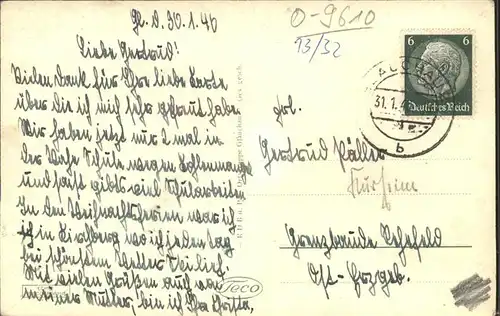 Gl. d. 30.1.40
Liebe Gertrud!
Vielen Dank für Ihre liebe Karte
über die ich mich sehr gefreut habe.
Wir haben jetzt nur 2 mal in
der Woche Schule wegen Kohlenmangel
und sonst gibts viel Schularbeiten
In den Weihnachtsferien war ich
in Kirchberg wo ich jeden Tag
bei schönstem Wetter Ski lief.
Mit vielen Grüßen auch von
meiner Mutter, bin ich Ihre
O-9610
13/32
6 6
Deutsches Reich
31.1.4
b
Frl.
Gertrud
Kurheim
Grenzbaude Rehefeld
Ost-Erzgeb.
Seco